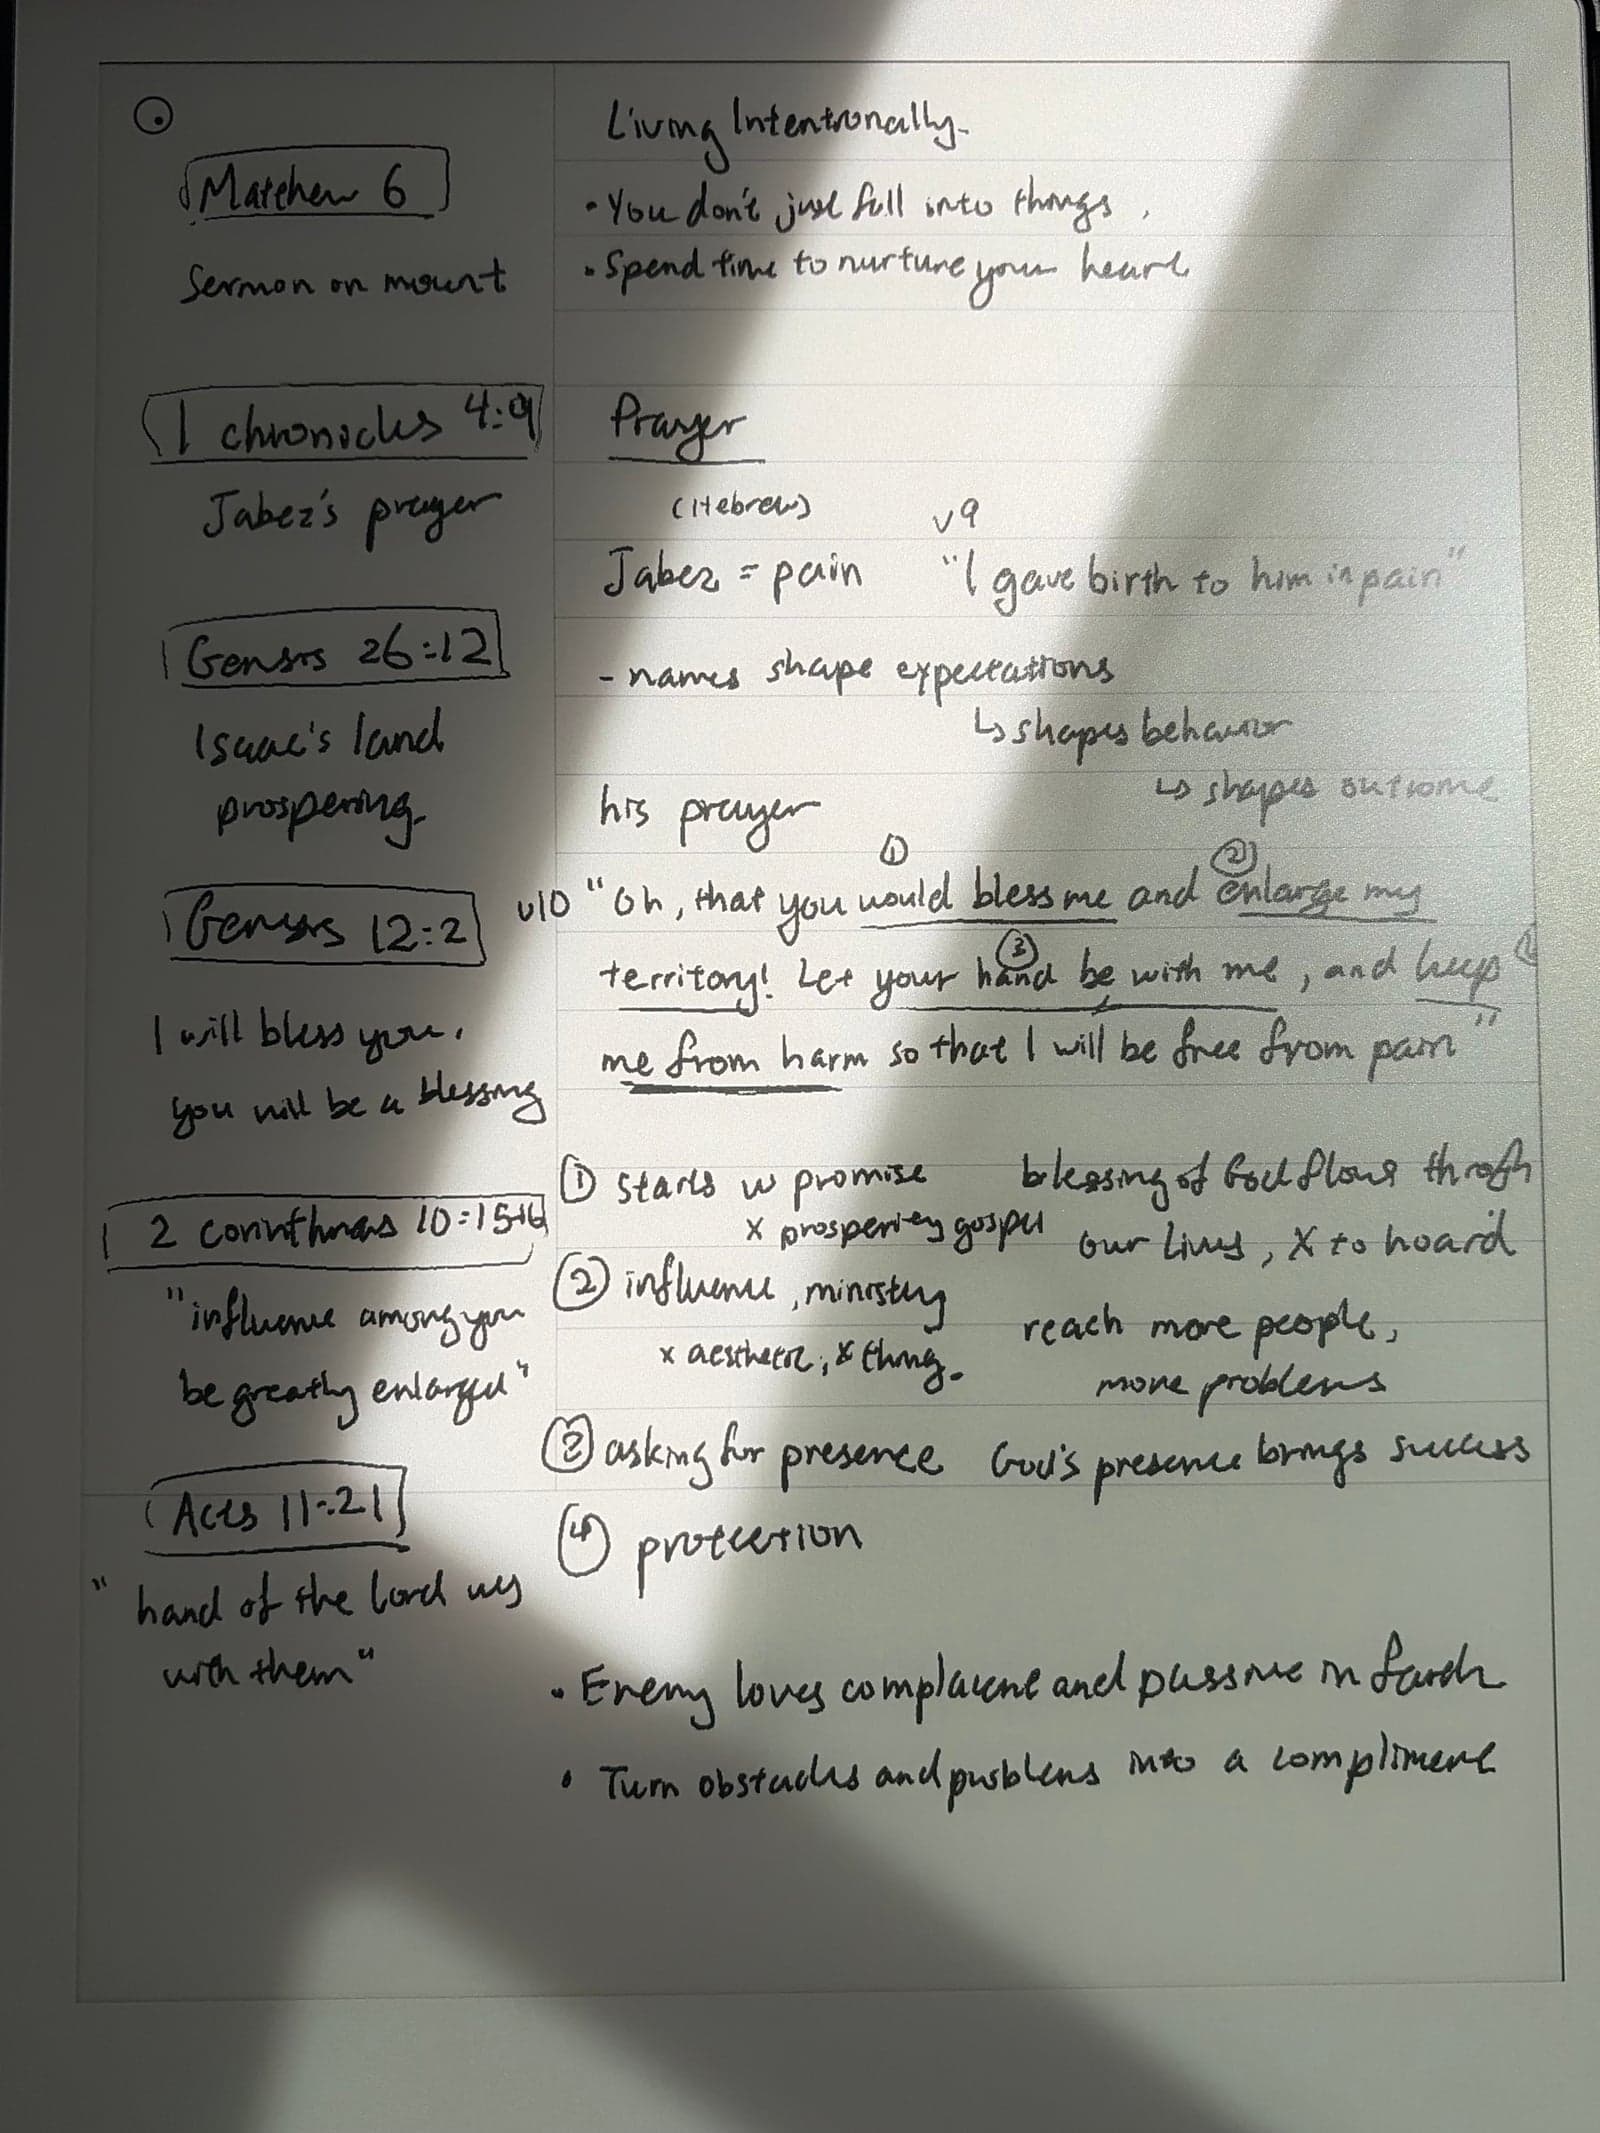 Matthew 6
Sermon on mount
1 chronicles 4:9
Jabez's prayer
Genesis 26:12
Isaac's land
prospering.
Genesis 12:2
I will bless you,
you will be a blessing
2 corinthians 10:15-16
"influence among you
be greatly enlarged"
Acts 11:21
"hand of the lord was
with them"
Living Intentionally.
• You don't just fall into things.
• Spend time to nurture your heart
Prayer
(Hebrew) v9
Jabez = pain "I gave birth to him in pain"
- names shape expectations
↳ shapes behavior
↳ shapes outcome
his prayer
① ②
v10 "Oh, that you would bless me and enlarge my
③
territory! Let your hand be with me, and keep
me from harm so that I will be free from pain"
① starts w promise blessing of God flows through
x prosperity gospel our lives, x to hoard
② influence, ministry
reach more people,
x aesthetic, x thing.
more problems
③ asking for presence God's presence brings success
④ protection
• Enemy loves complacent and passive in faith
• Turn obstacles and problems into a compliment